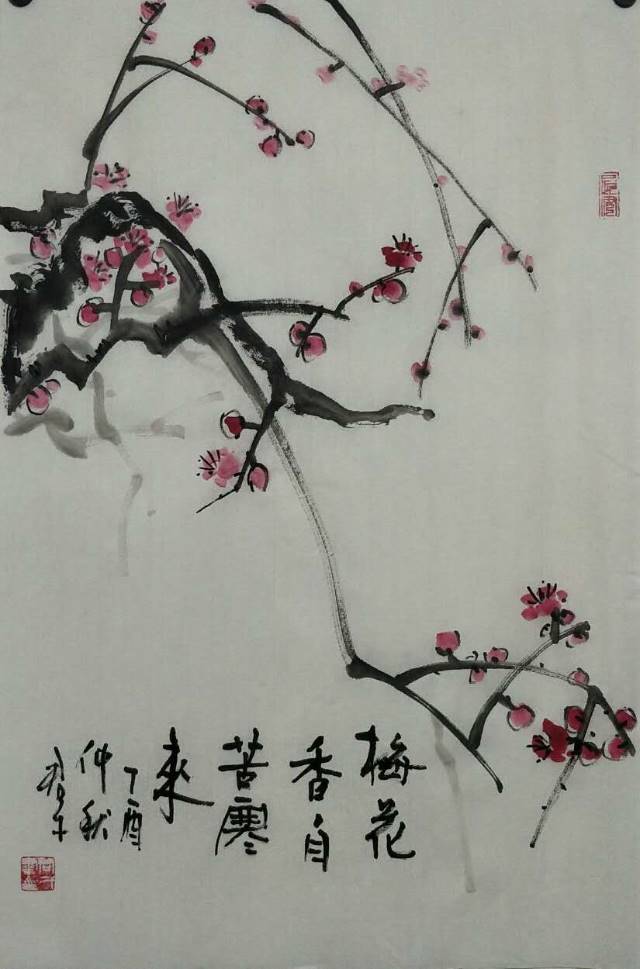 梅花
香自
苦寒
來
丁酉
仲秋